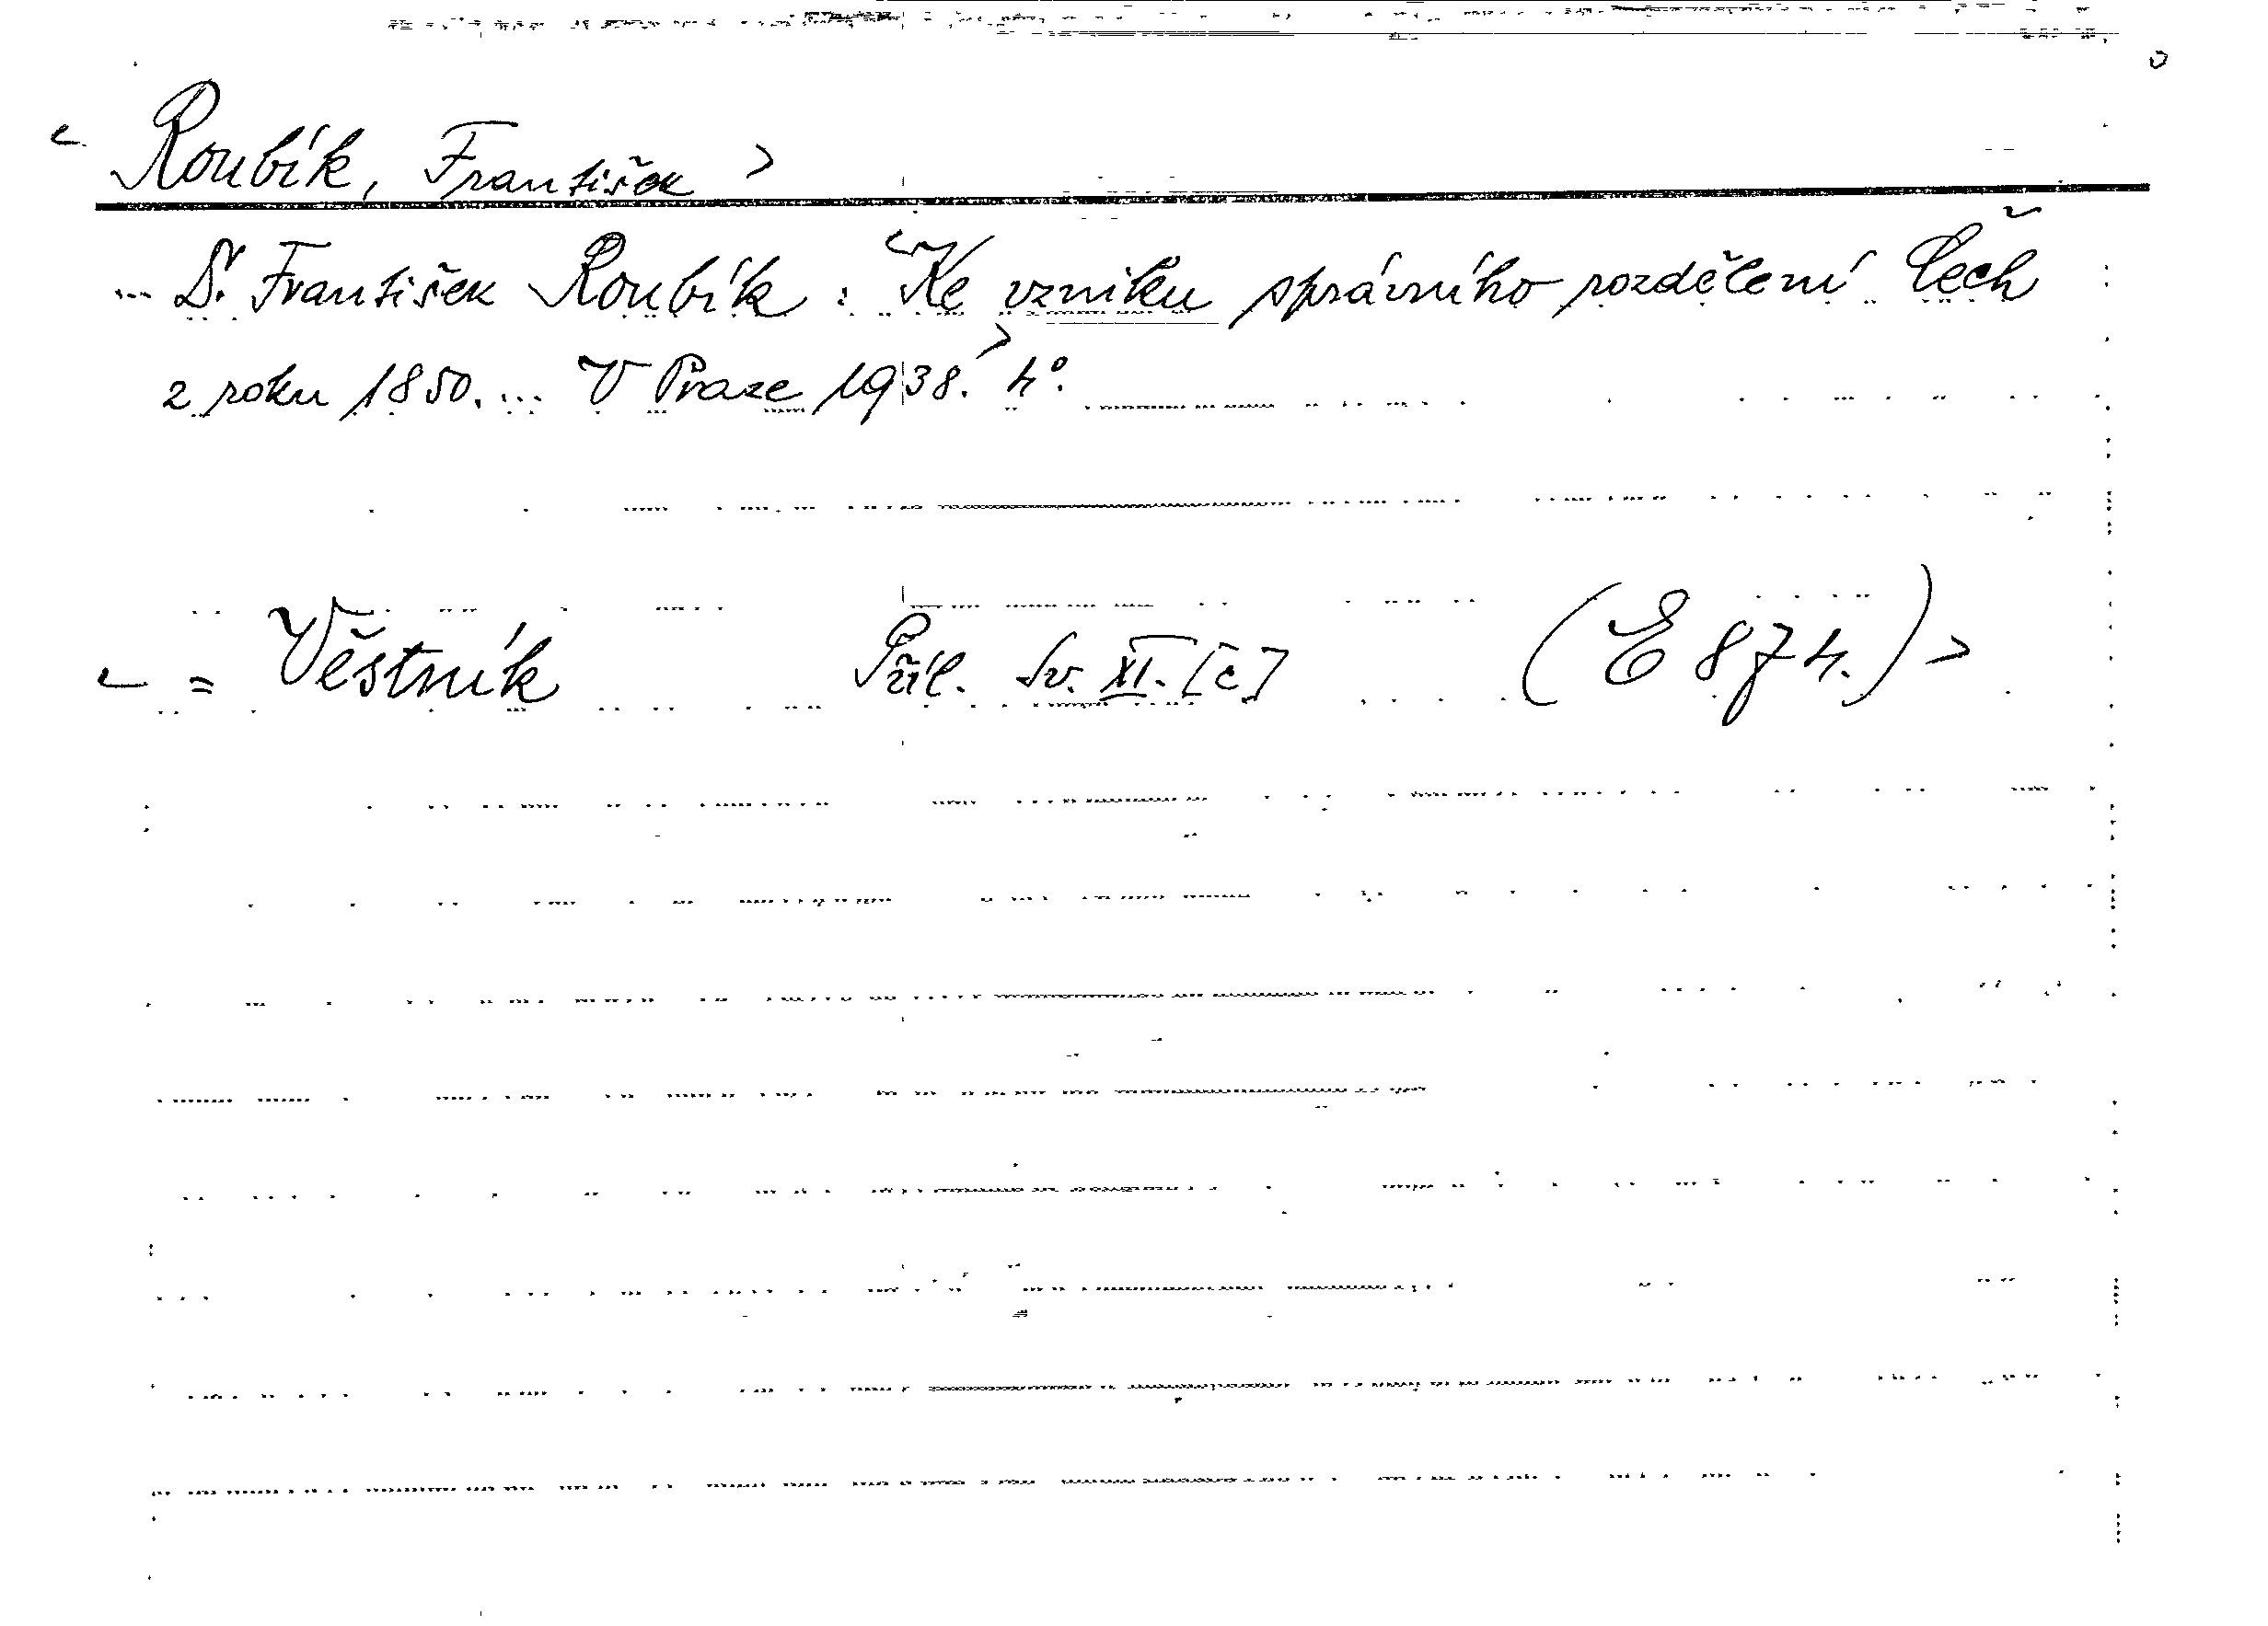 < Roubík, František >
... Dr. František Roubík : <Ke vzniku správního rozdělení Čech
z roku 1850. ... V Praze 1938.> 4°.
< = Věstník Příl. Sv. XI. [c] (E 874.) >